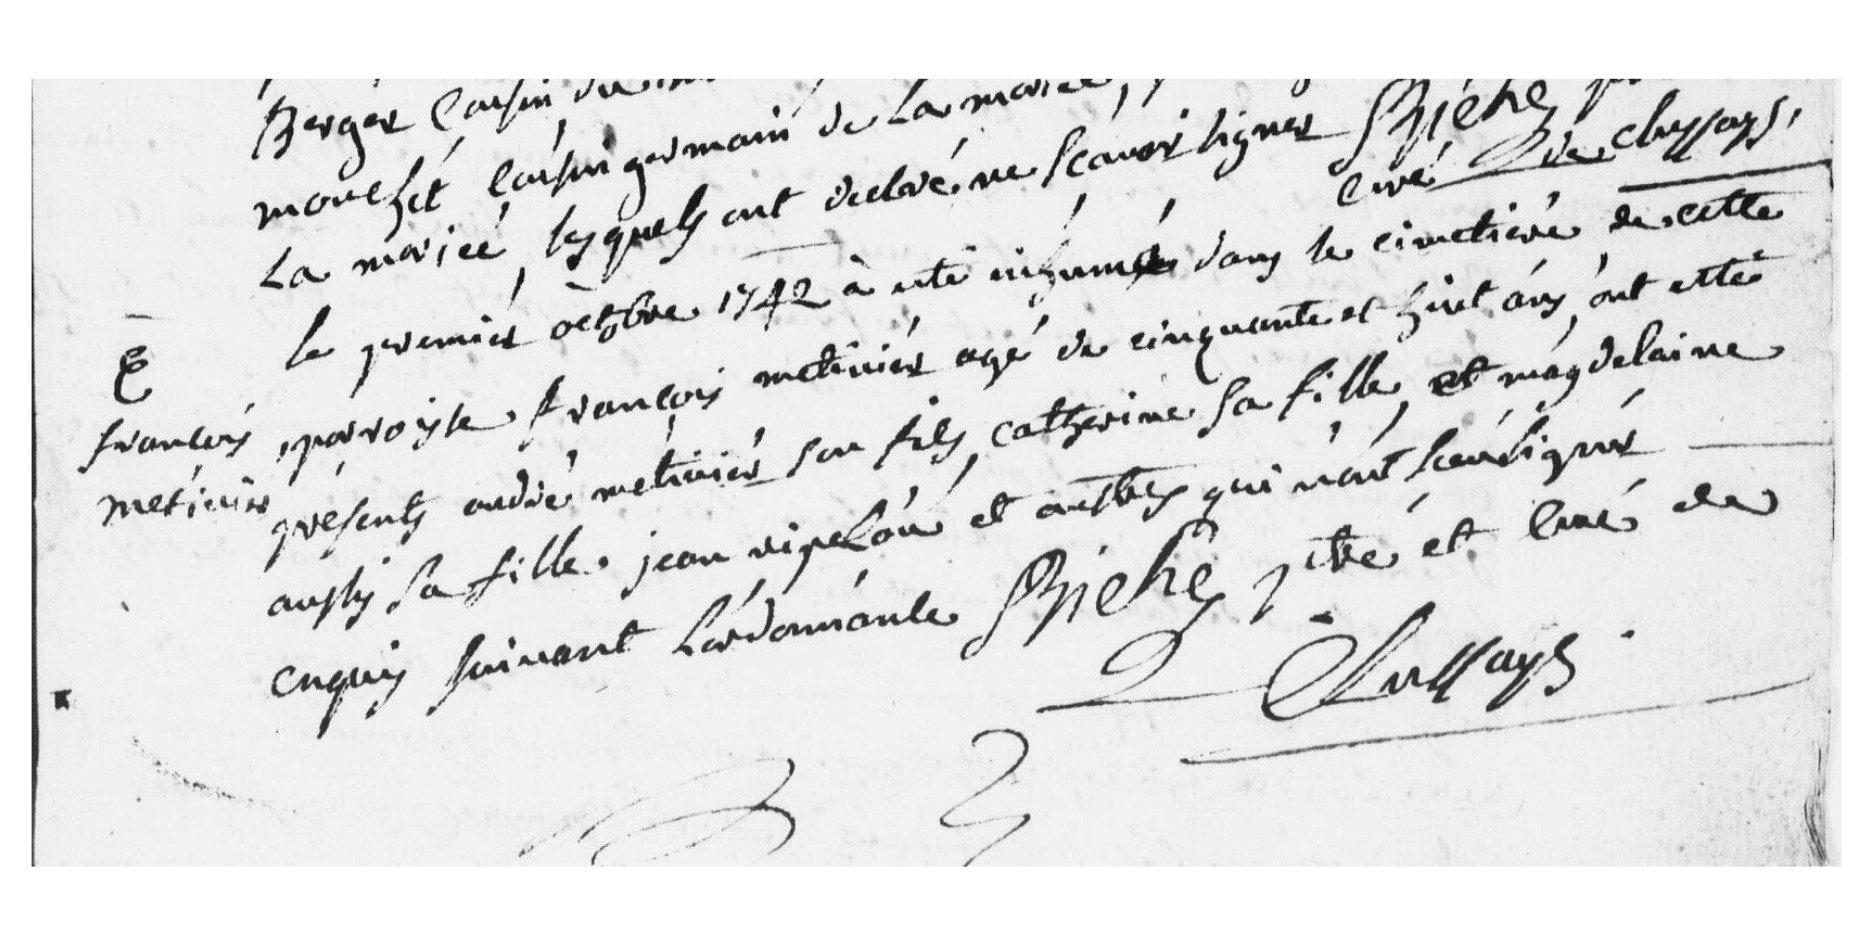 Berger Cousin du
mouchet Cousin germain de La mariée,
La mariée, lesquels ont declaré ne scavoir signer Riché
Curé de chussays,
le premier octobre 1742 à eté inhumé dans le cimetiere de cette
E
françois
metivier
parroisse françois metivier agé de cinquante et huit ans, ont etté
présents andré metivier son fils, catherine sa fille, et magdelaine
aussy sa fille. jean ripelou et autres qui n'ont sceu signer
Enquis suivant L'ordonnance Richē ptre et Curé de
Clussays